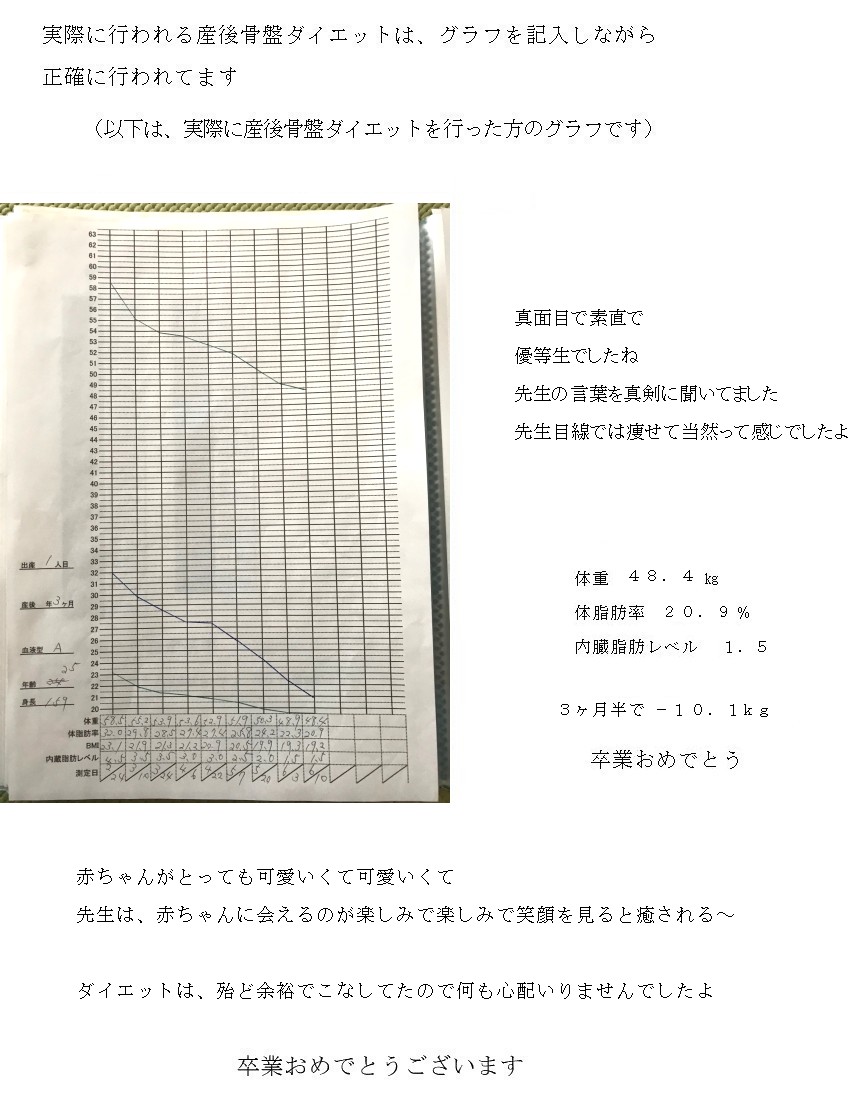 実際に行われる産後骨盤ダイエットは、グラフを記入しながら
正確に行われてます
（以下は、実際に産後骨盤ダイエットを行った方のグラフです）
63
62
61
60
59
58
57
56
55
54
53
52
51
50
49
48
47
46
45
44
43
42
41
40
39
38
37
36
35
34
33
32
31
30
29
28
27
26
25
24
23
22
21
20
出産 1 人目
産後 年3ヶ月
血液型 A
25
年齢
身長 159
体重 58.5 55.2 53.9 53.6 52.9 51.9 50.3 48.9 48.4
体脂肪率 32.0 29.8 28.5 27.4 27.4 25.8 24.2 22.3 20.9
BMI 23.1 21.9 21.3 21.2 20.9 20.5 19.9 19.3 19.2
内臓脂肪レベル 4.5 3.5 3.5 3.0 3.0 2.5 2.0 1.5 1.5
測定日 3/10 3/24 4/6 4/22 5/7 5/20 6/3 6/10
真面目で素直で
優等生でしたね
先生の言葉を真剣に聞いてました
先生目線では痩せて当然って感じでしたよ
体重 ４８．４㎏
体脂肪率 ２０．９％
内臓脂肪レベル １．５
３ヶ月半で －１０．１ｋｇ
卒業おめでとう
赤ちゃんがとっても可愛いくて可愛いくて
先生は、赤ちゃんに会えるのが楽しみで楽しみで笑顔を見ると癒される～
ダイエットは、殆ど余裕でこなしてたので何も心配いりませんでしたよ
卒業おめでとうございます